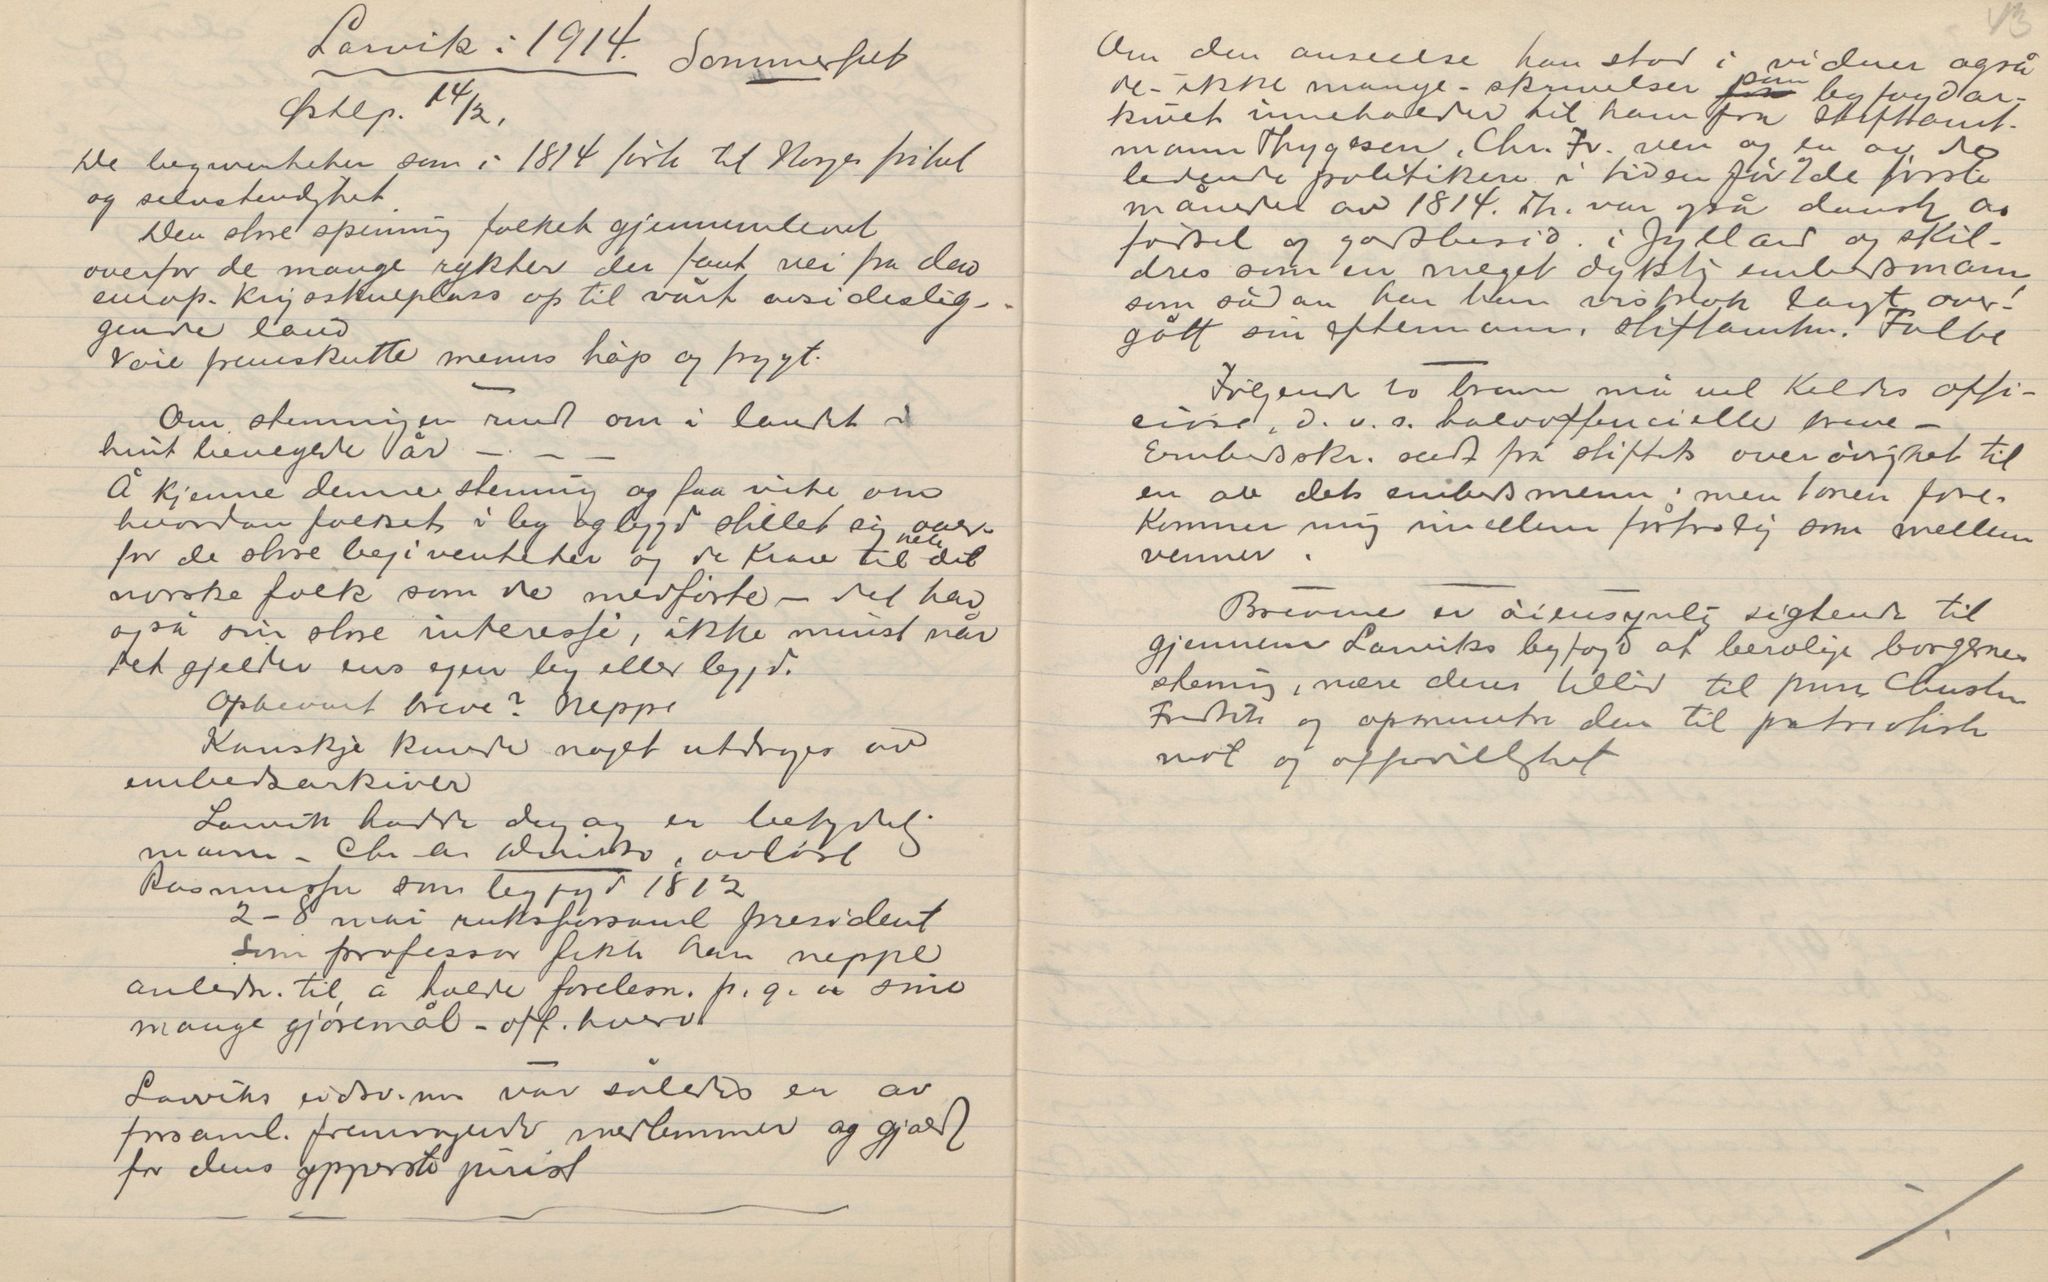 Larvik i 1914. Sommerfelt
Østlp. 14/2.
De begivenheter som i 1814 førte til Norges frihet
og selvstendighet.
Den store spenning folket gjennemlevet
overfor de mange rykter der fant vei fra den
europ. krigsskueplass op til vårt avsideslig-
gende land
fremskutte menns håp og frygt.
Om stemningen rundt om i landet i
hint bevegede år - - -
Å kjenne denne stemning og faa vite om
hvordan folket i by og bygd stillet sig over-
for de store begivenheter og de krav til hele det
norske folk som de medførte - det har
også sin store interesse, ikke minst når
det gjelder ens egen by eller bygd.
Opbevart breve? Neppe
Kanskje kunde noget utdrages av
embedsarkiver
Larvik hadde dog en betydelig
mann - Chr. , avløst
Rasmussen som byfogd 1812
2-8 mai riksforsaml president
Som professor fikk han neppe
anledn. til å holde forelesn. p. g. a sine
mange gjøremål - off. hverv
Larviks eidsv.m. var således en av
forsaml. fremragende medlemmer og gjaldt
for dens ypperste jurist
43
Om den anseelse han stod i vidner også
de - ikke mange - skrivelser som byfogdar-
kivet inneholder til ham fra stiftsamt-
mann Thygesen, Chr. Fr. ven og en av de
ledende politikere i tiden før de første
måneder av 1814. Th. var også dansk av
fødsel og godsbesid. i Jylland og skil-
dres som en meget dyktig embedsmann,
som sådan har han visstnok langt over-
gått sin eftermann, stiftamtm. Falbe
Følgende to breve må vel kaldes offi-
ciøse, d. v. s. halvofficielle breve -
Embedsskr. sendt fra stiftets overøvrighet til
en av dets embedsmenn; men tonen fore-
kommer mig imellem fortrolig som mellem
venner.
Brevene er øiensynlig sigtende til
gjennem Larviks byfogd at berolige borgernes
stemning, nære deres tillid til prins Christian
Fredrik og opmuntre den til patriotisk
mot og offervillighet